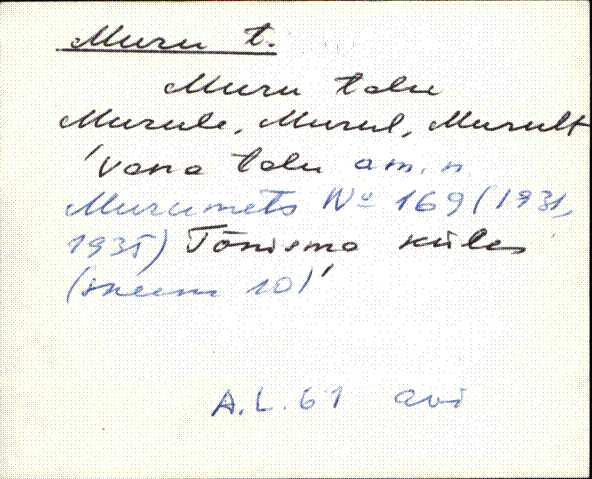 Muru t.
Muru talu
Murule, Murul, Murult
'vana talu am. n.
Murumets № 169 (1931,
1935) Tõnisma külas
(skeem 10)'
A.L. 61 avi